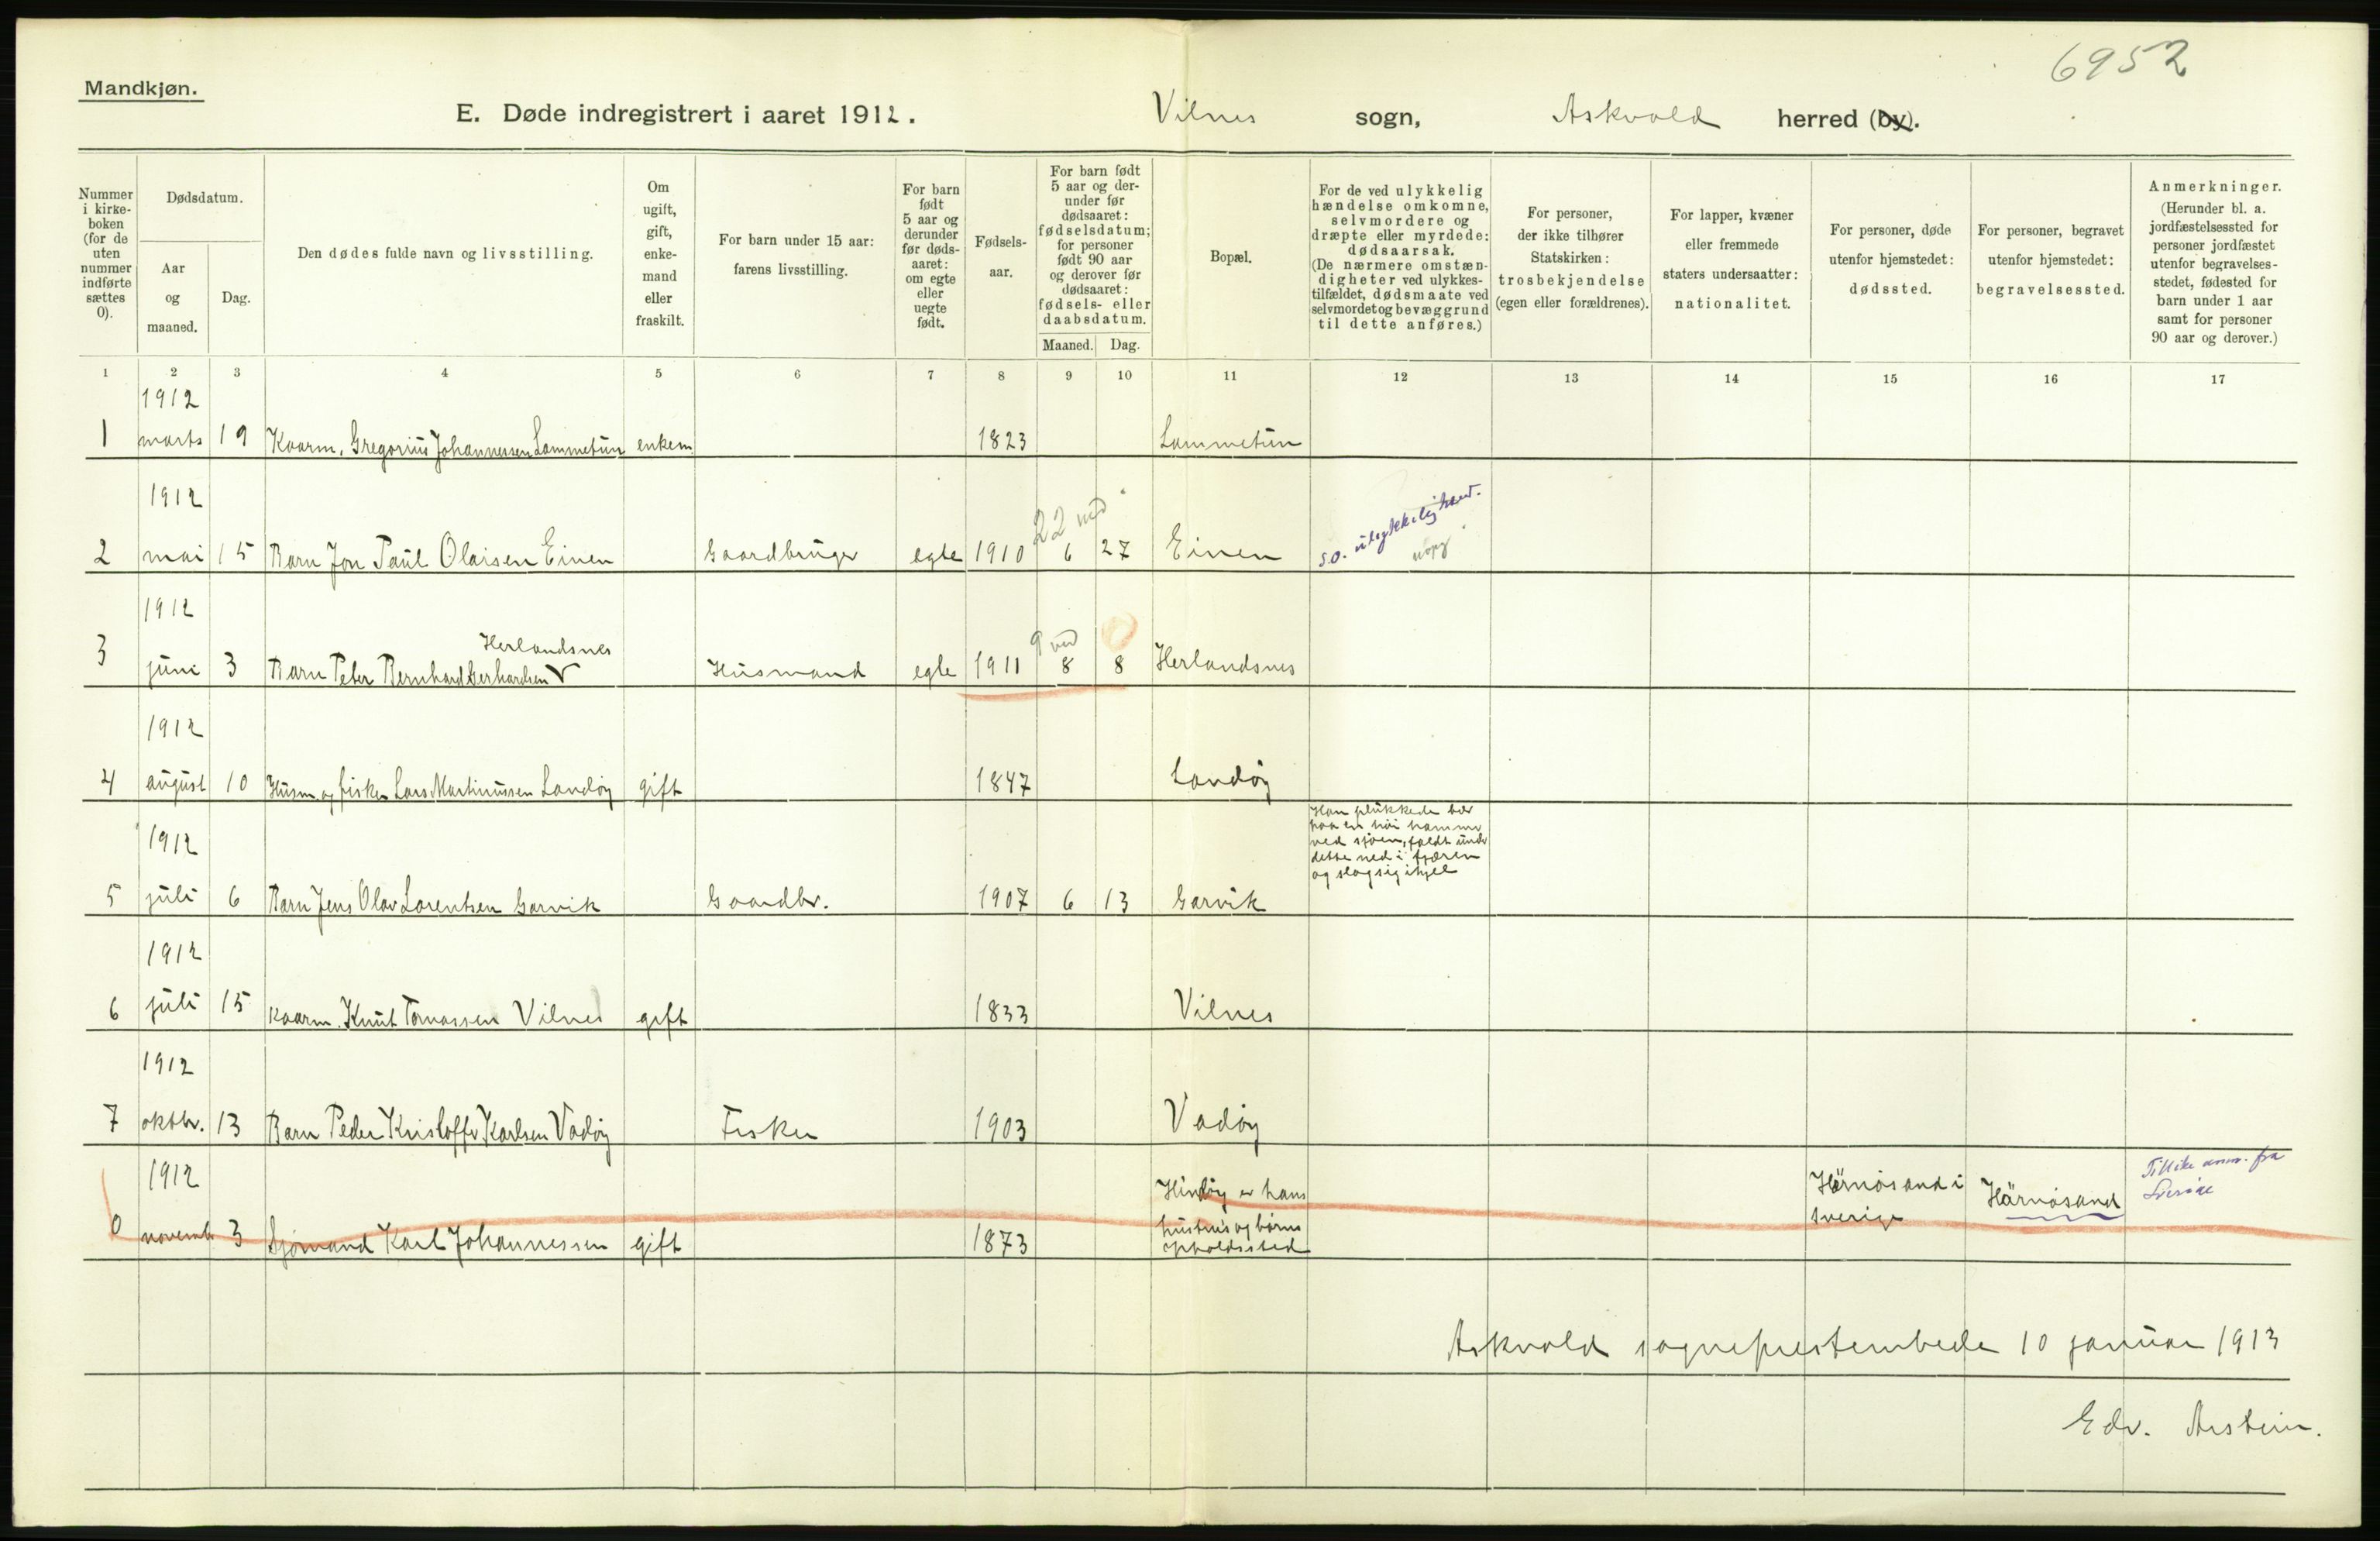 6952
Mandkjøn.
E. Døde indregistrert i aaret 1912. Vilnes sogn, Askvold herred (by).
Nummer i kirke-boken (for de uten nummer indførte sættes 0).
Dødsdatum.
Aar og maaned.
Dag.
Den dødes fulde navn og livsstilling.
Om ugift, gift, enke-mand eller fraskilt.
For barn under 15 aar: farens livsstilling.
For barn født 5 aar og derunder før døds-aaret: om egte eller uegte født.
Fødsels-aar.
For barn født 5 aar og der-under før dødsaaret: fødselsdatum; for personer født 90 aar og derover før dødsaaret: fødsels- eller daabsdatum.
Maaned. Dag.
Bopæl.
For de ved ulykkelig hændelse omkomne, selvmordere og dræpte eller myrdede: dødsaarsak. (De nærmere omstæn-digheter ved ulykkes-tilfældet, dødsmaate ved selvmordet og bevæggrund til dette anføres.)
For personer, der ikke tilhører Statskirken: trosbekjendelse (egen eller forældrenes).
For lapper, kvæner eller fremmede staters undersaatter: nationalitet.
For personer, døde utenfor hjemstedet: dødssted.
For personer, begravet utenfor hjemstedet: begravelsessted.
Anmerkninger. (Herunder bl. a. jordfæstelsessted for personer jordfæstet utenfor begravelses-stedet, fødested for barn under 1 aar samt for personer 90 aar og derover.)
1 2 3 4 5 6 7 8 9 10 11 12 13 14 15 16 17
1912
1 marts 19 Kaarm. Gregorius Johannessen Lammetun enkem 1823 Lammetun
1912 22 md
2 mai 15 Barn Jon Paul Olaisen Einen Gaardbruger egte 1910 6 27 Einen s.o. ulykkelig hænd.
1912
Herlandsnes 9 md 0
3 juni 3 Barn Peter Bernhard Gerhardsen V Husmand egte 1911 8 8 Herlandsnes
1912
4 august 10 Husm. og fisker Lars Martinussen Landøy gift 1847 Landøy
1912
Han plukkede bær
paa en høi hammer
ved sjøen, faldt under
dette ned i fjæren
og slog sig ihjel
5 juli 6 Barn Jens Olav Lorentsen Garvik Gaardbr. 1907 6 13 Garvik
1912
6 juli 15 Kaarm. Knut Tomassen Vilnes gift 1833 Vilnes
1912
7 oktbr. 13 Barn Peder Kristoffer Karlsen Vadøy Fisker 1903 Vadøy
1912
Hindøy er hans
hustrus og børns
opholdssted
0 novembr 3 Sjømand Karl Johannessen gift 1873
Härnøsand i
Sverige
Härnøsand
Tillike anm. fra
Sverige
Askvold sogneprestembede 10 januar 1913
Edv. Arstein.